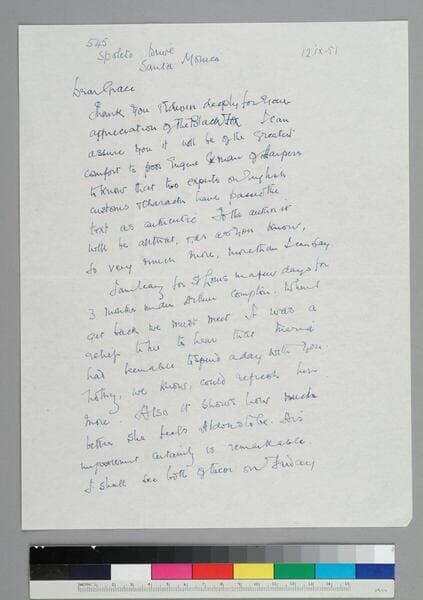 545
Spoleto Drive
Santa Monica
12.ix.51
Dear Grace
Thank you & Edwin deeply for your
appreciation of The Black Fox. I can
assure you it will be of the greatest
comfort to poor Eugene Exman of Harpers
to know that two experts on English
customs & characters have passed the
text as authentic. To the author it
will be all that, & as you know,
so very much more, more than I can say.
I am leaving for St Louis in a few days for
3 months under Arthur Compton. When I
get back we must meet. It was a
relief to me to hear that Maria
had been able to spend a day with you.
Nothing, we know, could refresh her
more. Also it shows how much
better she feels Aldous to be. His
improvement certainly is remarkable.
I shall see both of them on Friday